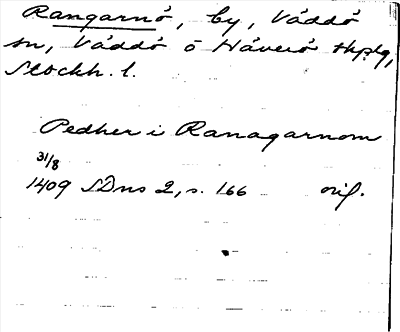 Rangarnö, by, Väddö
sn, Väddö o Häverö skplg,
Stockh. l.
Pedher i Ranagarnom
31/8
1409 SDns 2, s. 166 orig.